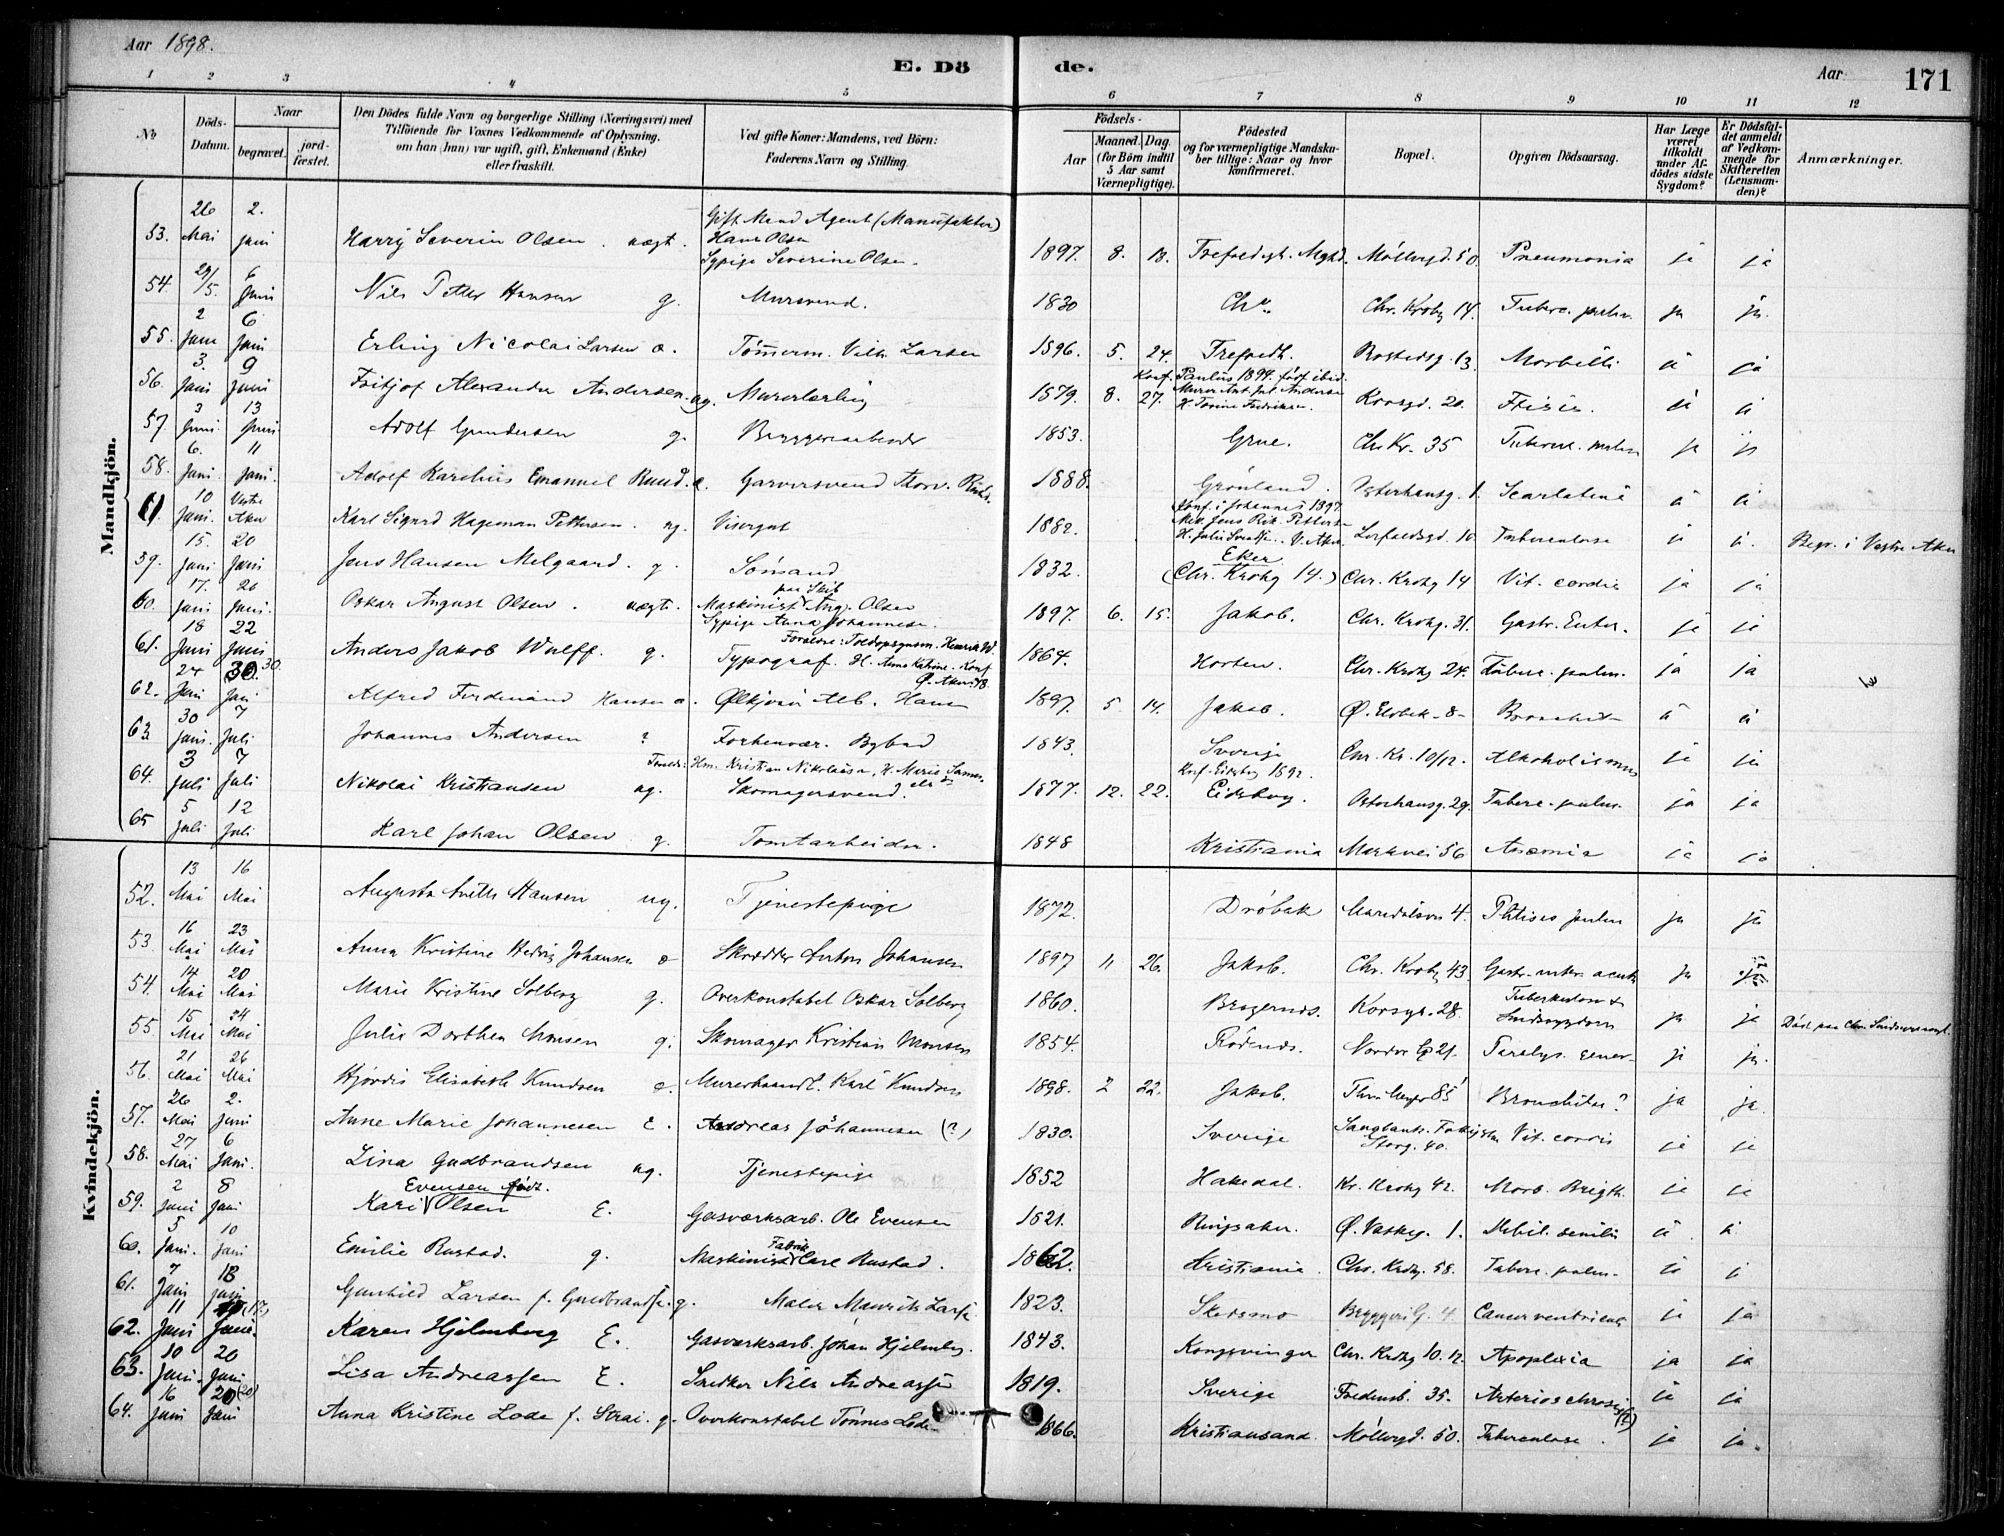 Aar 1898.
E. Dö
de.
Aar
171
1 2 3 4 5 6 7 8 9 10 11 12
No
Döds-Datum.
Naar
begravet. jordfæstet.
Den Dödes fulde Navn og borgerlige Stilling (Næringsvei) med Tilföiende for Voxnes Vedkommende af Oplysning, om han (hun) var ugift, gift, Enkemand (Enke) eller fraskilt.
Ved gifte Koner: Mandens, ved Börn: Faderens Navn og Stilling.
Födsels-
Aar
Maaned. Dag.
(for Börn indtil 5 Aar samt Værnepligtige).
Födested
og for værnepligtige Mandskaber tillige: Naar og hvor konfirmeret.
Bopæl.
Opgiven Dödsaarsag.
Har Læge været tilkaldt under Afdödes sidste Sygdom?
Er Dödsfaldet anmeldt af Vedkommende for Skifteretten (Lensmanden)?
Anmærkninger.
Mandkjön.
53. 26 Mai 2. juni Harry Severin Olsen. uægt. Gift Mand Agent (Manufaktur) Hans Olsen Sypige Severine Olsen. 1897. 8. 13. Trefoldigh. Møllergd. 50. Pneumonia ja ja
54. 29/5. 6 Juni Nils Petter Hansen g. Mursvend. 1830 Chr. Chr. Krohg 14. Tuberc. pulm. ja ja
55. 2 Juni 6 Juni Erling Nicolai Larsen e. Tømmerm. Vilh. Larsen 1896. 5. 24. Trefoldh. 13. Morbilli ja
56. 3. Juni 9 Juni Fritjof Alexander Andersen. ug. Murerlærling 1879. 8. 27. Konf. Paulus 1894. født ibid. Korsgd. 20. Ftisis.
57. 3 Juni 13 Juni Adolf Gundersen g. Bryggeriarbeider 1853. Grue. Chr. Kr. 35 Tuberc. pulm ja
58. 6. Juni. 11 Juni. Adolf Karelius Emanuel Ruud. e. Garversvend Thorv. Ruud. 1888. Grønland. Osterhausg. 1. Scarlatina
10 Juni. Vestre Aker Karl Sigurd Hageman Pettersen. ug. Visergut 1882. Konf. i Johannes 1897 V. Aker. 10. Tuberculose Begr. i Vestre Aker
59. 15. Juni 20 Juni Jens Hansen Melgaard. g. Sømand 1832. Eker (Chr. Krohg 14.) Chr. Krohg 14 Vit. cordis ja ja
60. 17. Juni 26 Juni. Oskar August Olsen. uægt. Maskinist paa Skib Aug. Olsen Sypige Anna Johannesen. 1897. 6. 15. Jakob. Chr. Krohg. 31. Gastr. Enter. ja ja
61. 18 Juni 22 Juni Anders Jakob Wulff. g. Typograf. 1864. Horten. Chr. Krohg 24. Tuberc. pulm. ja ja
62. 24 Juni 30. 30. Juni Alfred Ferdinand Hansen e. Ølkjører Alb. Hansen 1897. 5. 14. Jakob. Ø. Elvbak. 8
63. 30 Juni. 7 Juli Johannes Andersen ? Forhenvær. Bybud 1843. Sverige Chr. Kr. 10/12. Alkoholismus ja ja
64. 3 Juli 7 Juli Nikolai Kristiansen ug. Skomagersvend. 1877. 12. 22. Konf. Eidsberg 1892. Eidsberg. Osterhausg. 29. Tuberc. pulm. ja ja
65 5 Juli 12 Juli Karl Johan Olsen g. Tomtarbeider. 1848 Kristiania Markvei 56 Anæmia ja ja
Kvindekjön.
52. 13 Mai 16 Mai Hansen ug. Tjenestepige 1872. Drøbak Maridalsvn 4. Phtisis pulm ja ja
53. 16 Mai 23 Mai Anna Kristine Hedvig Johansen e Skrædder Anton Johansen 1897 11 26. Jakob. Chr. Krohg 43. Gastr. enter. acuta ja
54. 14 Mai 20 Mai Marie Kristine Solberg g. Overkonstabel Oskar Solberg 1860. Bragernes. Korsgt. 28. Tuberkulose & Sindssygdom ja ja
55 15 Mai 24 Mai Julie Dorthea Monsen g. Skomager Kristian Monsen 1854. Rødenes. 21. Paralys. gener. ja ja.
56. 21 Mai 26 Mai Hjørdis Elisabeth Knudsen e. Murerhaandl. Karl Knudsen 1898. 2 22. Jakob. Thv. Meyer 85 Bronchitis? ja ja.
57. 26 Mai 2. Juni Anne Marie Johannesen E. Andreas Johannesen (?) 1830. Sverige Storg. 40. Vit. cordis ja ja
58. 27 Mai 6 Juni. Lina Gudbrandsen ug. Tjenestepige 1852 Hakedal. Kr. Krohg 42. Morb. Brigth. ja ja
59. 2 Juni 8 Juni Evensen født Kari Olsen E. Gasværksarb. Ole Evensen 1821. Ringsaker. Ø. Vaskeg. 1. Debil. senilis
60. 5 Juni. 10 Juni Emilie Rustad. g. Maskinist Fabrik Carl Rustad. 1862. Kristiania. Chr. Krohg. 58. Tuberc. pulm.
61. 7 Juni 18 Juni Gunhild Larsen f. Gudbrands. g. Maler Maurits Larsen 1823. Skedsmo Bryggerig. 4 Cancer ventriculi ja ja
62. 11 Juni (17.) Juni. Karen Hjelmberg E. Gasværksarb. Johan Hjelmberg. 1843. Kongsvinger Chr. Krohg 10.12. Apoplexia ja ja
63. 10 Juni. 20 Juni Lisa Andreassen E. Snedker Nils Andreassen 1819. Sverige Fredensb. 35. ja ja
64. 16 Juni 20 (20) Juni Anna Kristine Lode f. Strai. g. Overkonstabel Tønnes Lode 1866. Kristiansand. Møllergd. 50. Tuberculose. ja ja.